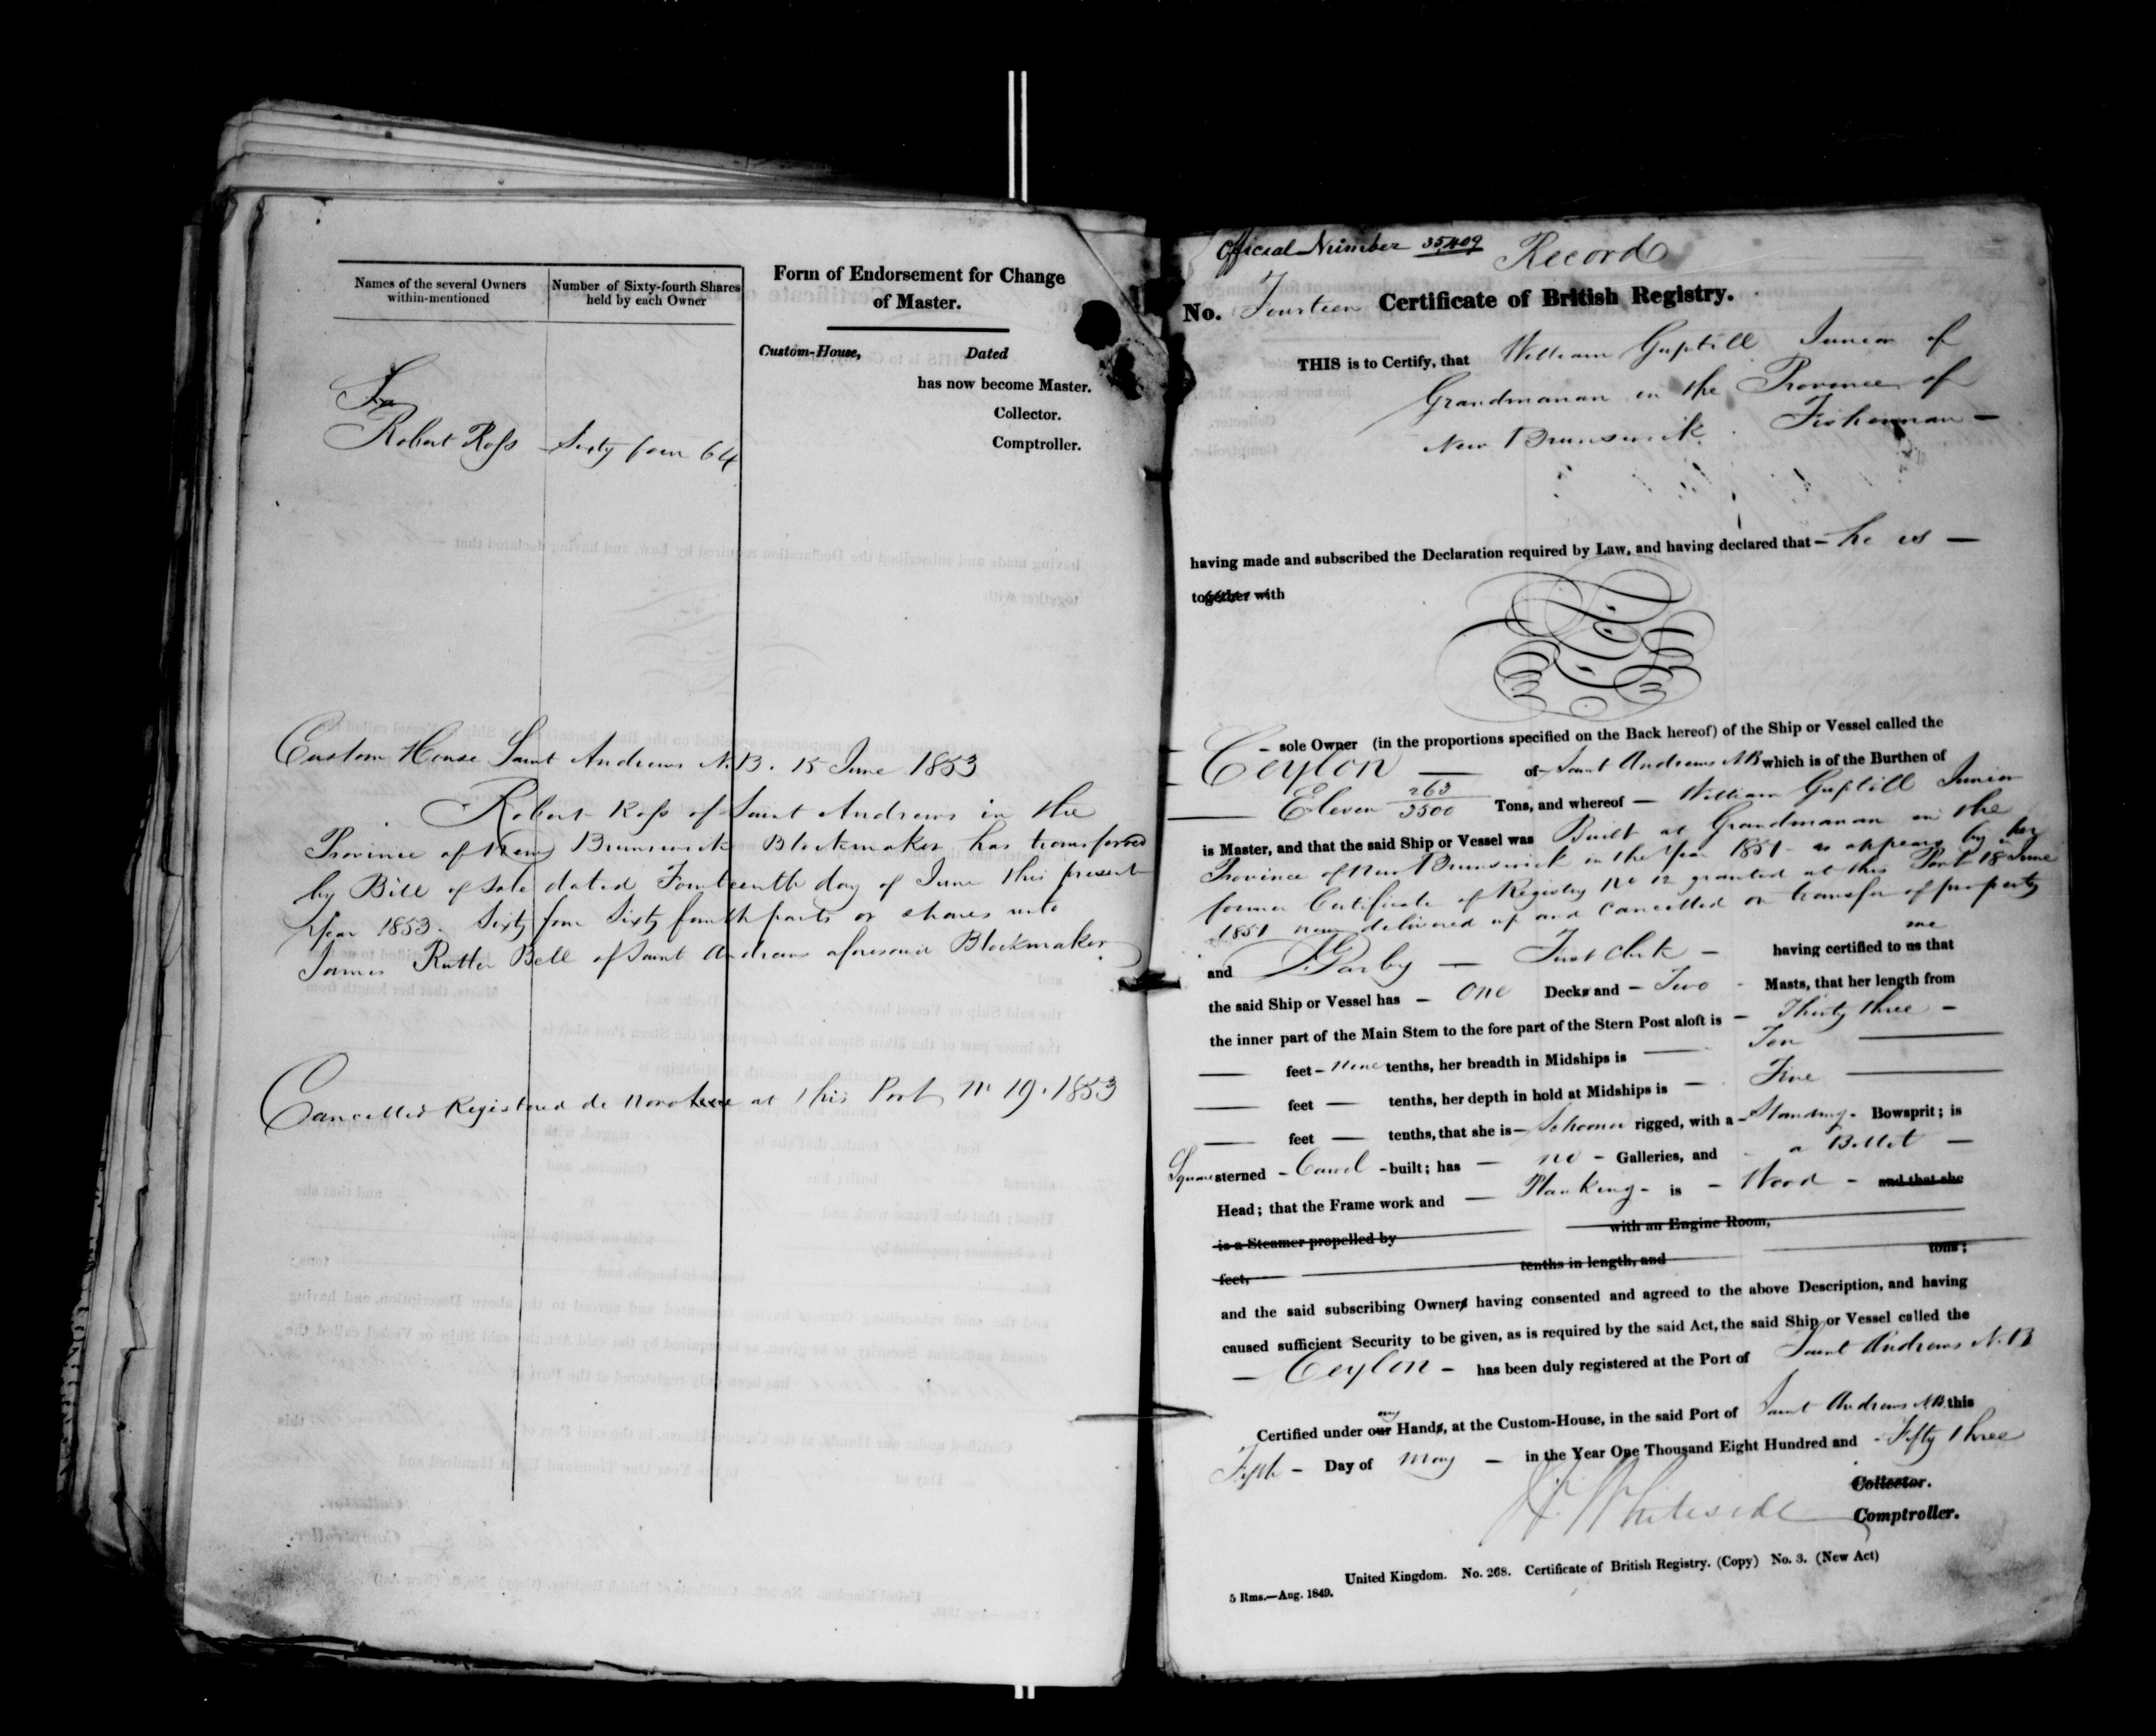 Names of the several Owners within-mentioned
Number of Sixty-fourth Shares held by each Owner
Robert Ross Sixty four 64
Form of Endorsement for Change
of Master.
Custom-House, Dated
has now become Master.
Collector.
Comptroller.
Custom House Saint Andrews N.B. 15 June 1853
Robert Ross of Saint Andrews in the
Province of New Brunswick Blockmaker has transferred
by Bill of Sale dated Fourteenth day of June this present
Year 1853. Sixty four Sixty fourth parts or shares unto
James Rutter Bell of Saint Andrews aforesaid Blockmaker
Cancelled Registered de Novo at this Port No 19. 1853
Official Number 35,409 Record
No. Fourteen Certificate of British Registry.
THIS is to Certify, that William Guptill Junior of
Grandmanan in the Province of
New Brunswick. Fisherman —
having made and subscribed the Declaration required by Law, and having declared that — he is —
together with
— sole Owner (in the proportions specified on the Back hereof) of the Ship or Vessel called the
Ceylon — of Saint Andrews NB which is of the Burthen of
Eleven 263/3500 Tons, and whereof — William Guptill Junior
is Master, and that the said Ship or Vessel was Built at Grandmanan in the
Province of New Brunswick in the Year 1851 as appears by her
former Certificate of Registry No 12 granted at this Port 18 June
1851 now delivered up and cancelled on transfer of property
and — First Clerk — having certified to us me that
the said Ship or Vessel has — One Decks and — Two — Masts, that her length from
the inner part of the Main Stem to the fore part of the Stern Post aloft is — Thirty three —
— feet — nine tenths, her breadth in Midships is — Ten —
— feet — tenths, her depth in hold at Midships is — Five —
— feet — tenths, that she is — Schooner rigged, with a — Standing — Bowsprit; is
Square sterned — Carvel — built; has — no — Galleries, and — a Billet —
Head; that the Frame work and — Planking — is — Wood — and that she
is a Steamer propelled by with an Engine Room,
feet, tenths in length, and tons;
and the said subscribing Owners having consented and agreed to the above Description, and having
caused sufficient Security to be given, as is required by the said Act, the said Ship or Vessel called the
— Ceylon — has been duly registered at the Port of Saint Andrews N.B
Certified under our my Hands, at the Custom-House, in the said Port of Saint Andrews NB this
Fifth — Day of May — in the Year One Thousand Eight Hundred and — Fifty three
Collector.
Whiteside Comptroller.
United Kingdom. No. 268. Certificate of British Registry. (Copy) No. 3. (New Act)
5 Rms.—Aug. 1849.